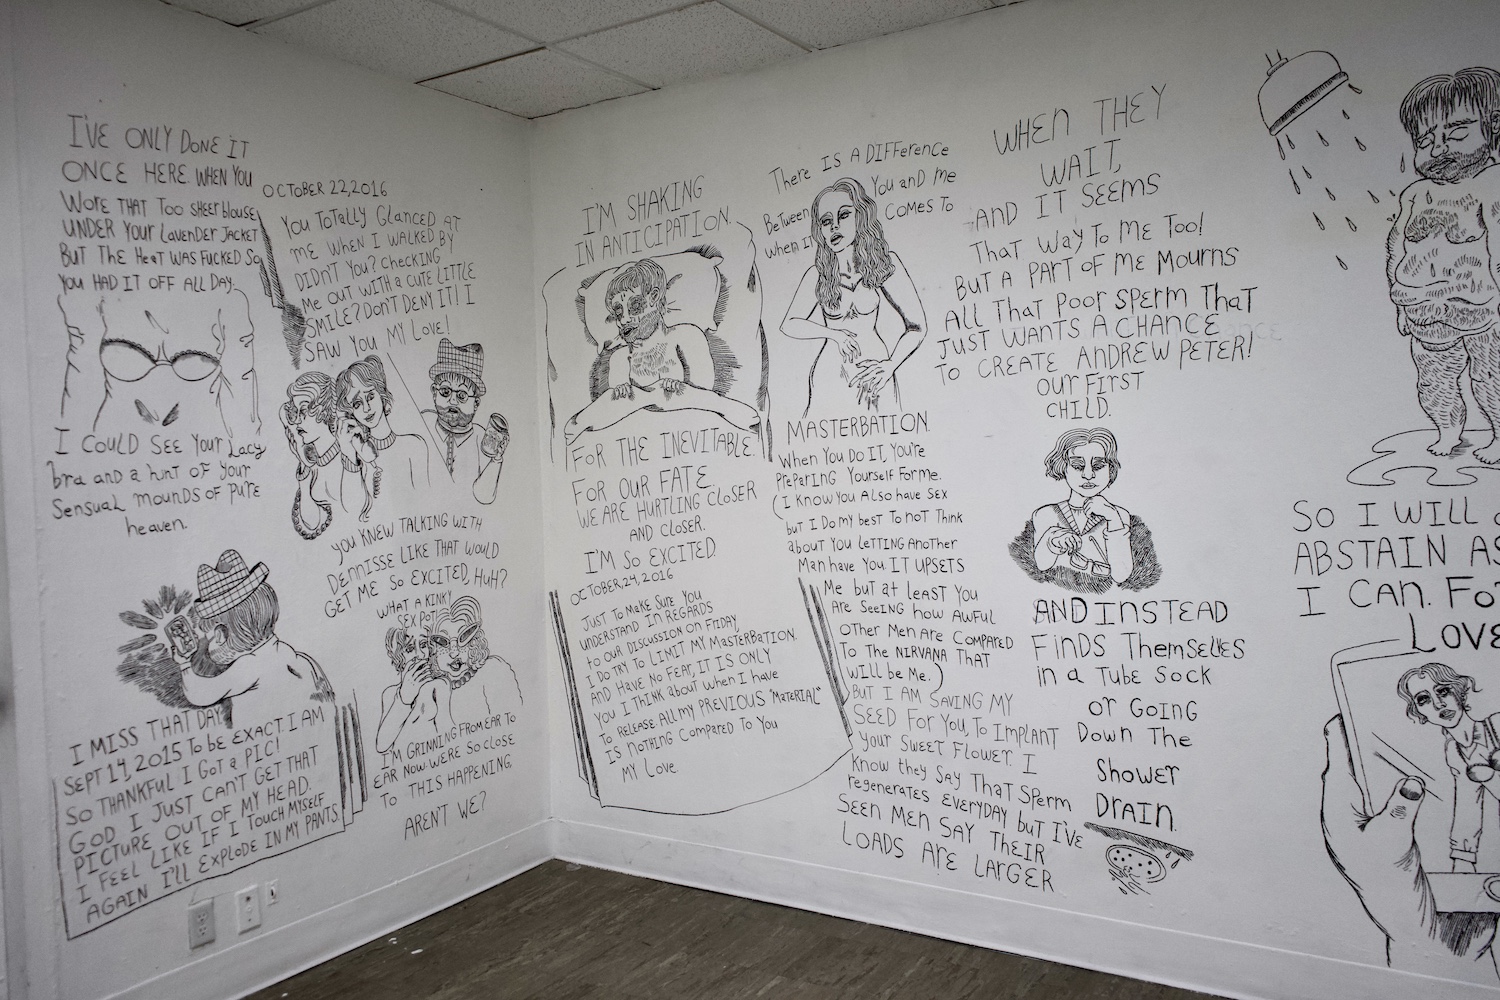 I'VE ONLY DONE IT
ONCE HERE. WHEN YOU
WORE THAT TOO SHEER BLOUSE
UNDER YOUR LAVENDER JACKET
BUT THE HEAT WAS FUCKED SO
YOU HAD IT OFF ALL DAY.
I COULD SEE YOUR LACY
bra and a hint OF YOUR
SENSUAL MOUNDS OF PURE
heaven.
I MISS THAT DAY
SEPT 14, 2015 TO BE EXACT I AM
SO THANKFUL I GOT A PIC!
GOD I JUST CAN'T GET THAT
PICTURE OUT OF MY HEAD.
I FEEL LIKE IF I TOUCH MYSELF
AGAIN I'LL EXPLODE IN MY PANTS.
OCTOBER 22, 2016
YOU TOTALLY GLANCED AT
ME WHEN I WALKED BY
DIDN'T YOU? CHECKING
ME OUT WITH A CUTE LITTLE
SMILE? DON'T DENY IT! I
SAW YOU MY LOVE!
YOU KNEW TALKING WITH
DENNISSE LIKE THAT WOULD
GET ME SO EXCITED, HUH?
WHAT A KINKY
SEX POT
I'M GRINNING FROM EAR TO
EAR NOW. WE'RE SO CLOSE
TO THIS HAPPENING,
AREN'T WE?
I'M SHAKING
IN ANTICIPATION.
FOR THE INEVITABLE.
FOR OUR FATE
WE ARE HURTLING CLOSER
AND CLOSER.
I'M SO EXCITED
OCTOBER 24, 2016
JUST TO MAKE SURE YOU
UNDERSTAND IN REGARDS
TO OUR DISCUSSION ON FRIDAY
I DO TRY TO LIMIT MY MASTERBATION.
AND HAVE NO FEAR, IT IS ONLY
YOU I THINK ABOUT WHEN I HAVE
TO RELEASE. ALL MY PREVIOUS "MATERIAL"
IS NOTHING COMPARED TO YOU
MY LOVE.
There IS A DIFFERENCE
BETWEEN YOU and ME
WHEN IT COMES TO
MASTERBATION.
WHEN YOU DO IT, YOU'RE
PREPARING YOURSELF FOR ME.
(I KNOW YOU ALSO HAVE SEX
but I DO MY BEST TO NOT THINK
ABOUT YOU LETTING ANOTHER
MAN HAVE YOU IT UPSETS
ME but at LEAST YOU
ARE SEEING HOW AWFUL
OTHER MEN ARE COMPARED
TO THE NIRVANA THAT
WILL be ME.)
BUT I AM SAVING MY
SEED FOR YOU, TO IMPLANT
YOUR SWEET FLOWER. I
KNOW THEY SAY THAT SPERM
regenerates EVERYDAY but I'VE
SEEN MEN SAY THEIR
LOADS ARE LARGER
WHEN THEY
WAIT,
AND IT SEEMS
THAT WAY TO ME TOO!
BUT A PART OF ME MOURNS
ALL THAT POOR SPERM THAT
JUST WANTS A CHANCE
TO CREATE ANDREW PETER!
OUR FIRST
CHILD.
AND INSTEAD
FINDS THEMSELVES
in a TUBE SOCK
or GOING
DOWN THE
SHOWER
DRAIN.
SO I WILL
ABSTAIN AS
I CAN. FOR
LOVE